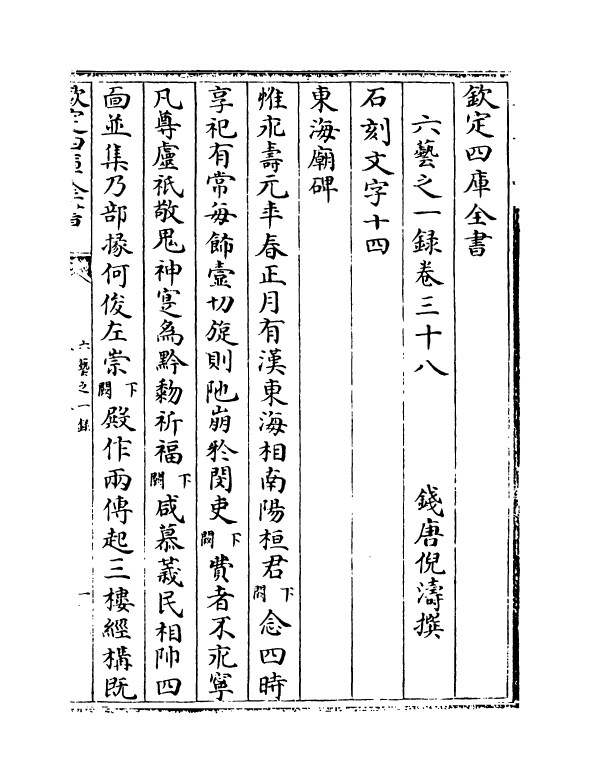 欽定四庫全書
六藝之一録卷三十八　錢唐倪濤撰
石刻文字十四
東海廟碑
惟永壽元年春正月有漢東海相南陽桓君下闕念四時
享祀有常每飾壹切旋則阤崩於閔吏下闕費者不永寧
凡尊虛祇敬鬼神寔為黔黎祈福下闕咸慕義民相帥四
面並集乃部掾何俊左崇下闕殿作兩傳起三樓經構既
欽定四庫全書
六藝之一録
一